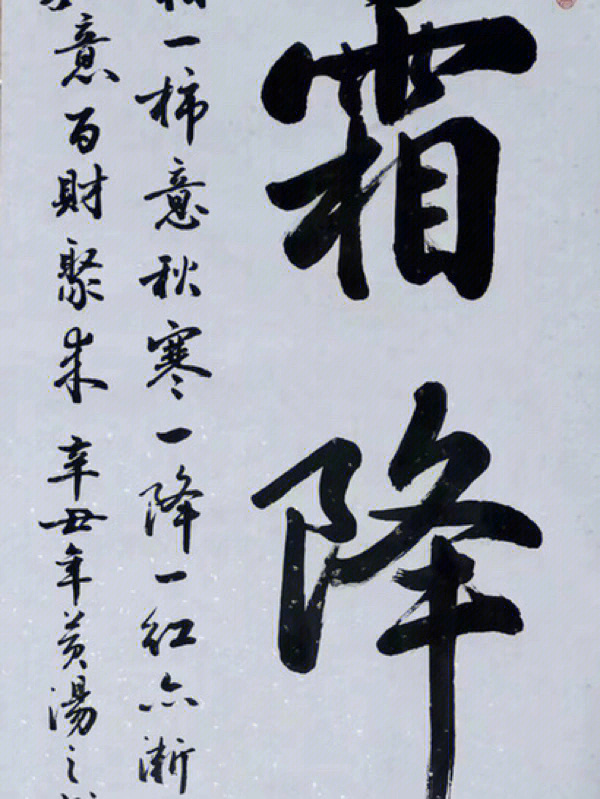 霜降
一柿意秋寒一降一红亦渐
意百財聚来辛丑年黄湯之